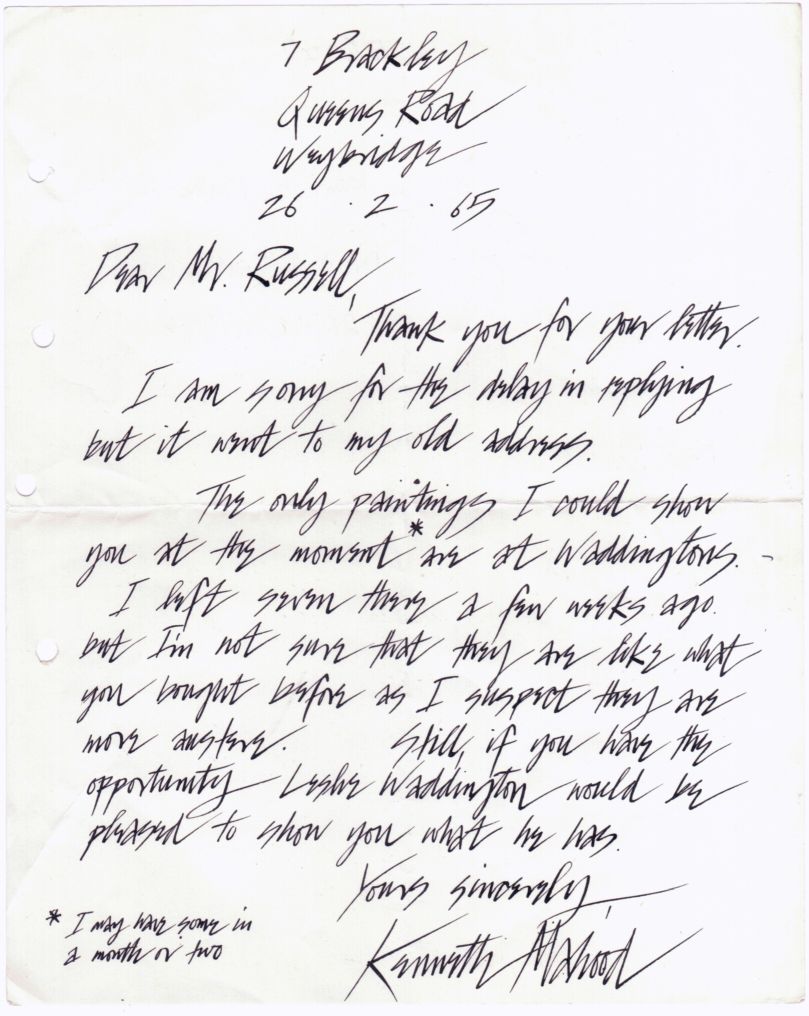 7 Brackley
Queens Road
Weybridge
26 . 2 . 65
Dear Mr. Russell,
Thank you for your letter.
I am sorry for the delay in replying
but it went to my old address.
The only paintings I could show
you at the moment * are at Waddingtons. -
I left seven there a few weeks ago.
but I'm not sure that they are like what
you bought before as I suspect they are
more austere. Still, if you have the
opportunity Leslie Waddington would be
pleased to show you what he has.
Yours sincerely,
Kenneth Mahood
* I may have some in
a month or two